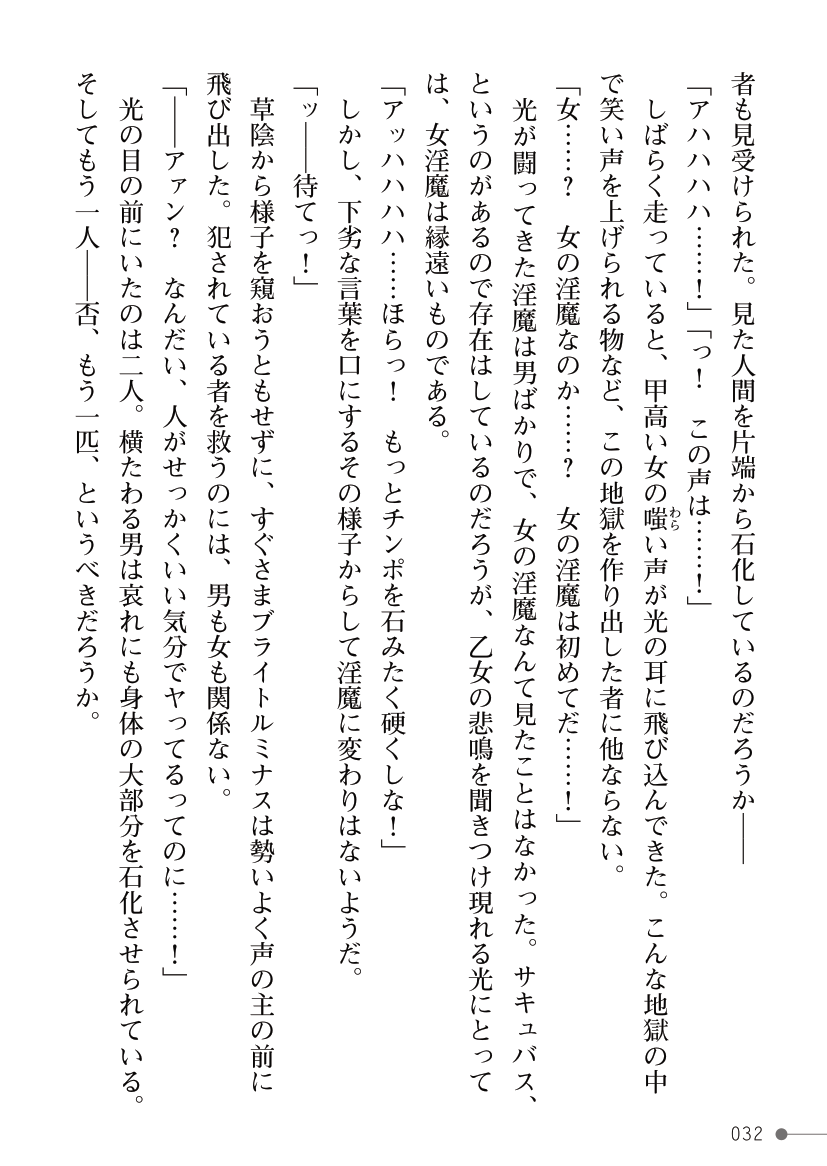 者も見受けられた。見た人間を片端から石化しているのだろうか――
「アハハハハ……！」「っ！　この声は……！」
　しばらく走っていると、甲高い女の嗤い声が光の耳に飛び込んできた。こんな地獄の中
わら
で笑い声を上げられる物など、この地獄を作り出した者に他ならない。
「女……？　女の淫魔なのか……？　女の淫魔は初めてだ……！」
　光が闘ってきた淫魔は男ばかりで、女の淫魔なんて見たことはなかった。サキュバス、
というのがあるので存在はしているのだろうが、乙女の悲鳴を聞きつけ現れる光にとって
は、女淫魔は縁遠いものである。
「アッハハハハ……ほらっ！　もっとチンポを石みたく硬くしな！」
　しかし、下劣な言葉を口にするその様子からして淫魔に変わりはないようだ。
「ッ――待てっ！」
　草陰から様子を窺おうともせずに、すぐさまブライトルミナスは勢いよく声の主の前に
飛び出した。犯されている者を救うのには、男も女も関係ない。
「――アァン？　なんだい、人がせっかくいい気分でヤってるってのに……！」
　光の目の前にいたのは二人。横たわる男は哀れにも身体の大部分を石化させられている。
そしてもう一人――否、もう一匹、というべきだろうか。
032